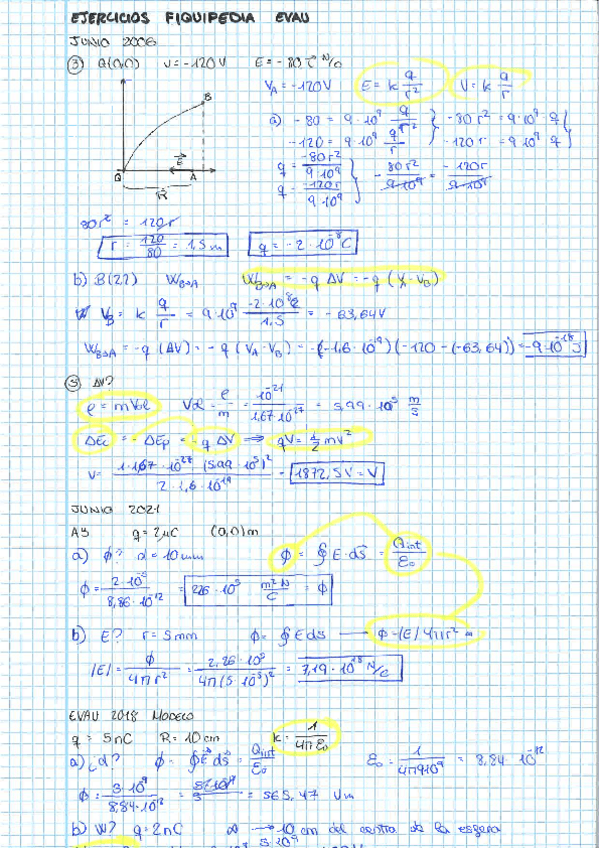 EJERCICIOS FIQUIPEDIA EVAU
JUNIO 2006
③ Q(0,0) V=-120V E=-80 i N/C
V_A=-120V E=k q/r² V=k q/r
a) -80 = 9·10⁹ q/r² } -80r² = 9·10⁹ q
-120 = 9·10⁹ q/r } -120r = 9·10⁹ q
q = -80r²/9·10⁹ } -80r²/9·10⁹ = -120r/9·10⁹
q = -120r/9·10⁹
B
Q E A
R
80r² = 120r
r = 120/80 = 1,5m q = -2·10⁻⁸C
b) B(2,2) W_B→A W_B→A = -q ΔV = -q (V_A - V_B)
V_B = k q/r = 9·10⁹ = -63,64V
W_B→A = -q (ΔV) = -q (V_A - V_B) = -(-1,6·10⁻¹⁹)(-120-(-63,64)) = -9·10⁻¹⁸ J
③ ΔV?
ρ = m Vel Vel = ρ/m = 10⁻²¹/1,67·10⁻²⁷ = 5,99·10⁵ m/s
ΔEc = -ΔEp = -q ΔV ⟹ qV = ½ mv²
V = 1·1,67·10⁻²⁷ (5,99·10⁵)²/2·1,6·10⁻¹⁹ = 1872,5V = V
JUNIO 2021
A3 q = 2μC (0,0)m
a) ϕ? d = 10mm ϕ = ∮E·ds = Qint/ε₀
ϕ = 2·10⁻⁶/8,86·10⁻¹² = 226·10³ m²N/C = ϕ
b) E? r = 5mm ϕ = ∮E ds → ϕ = |E| 4πr²
|E| = ϕ/4πr² = 2,26·10⁵/4π(5·10⁻³)² = N/C
EVAU 2018 MODELO
q = 5nC R = 10cm k = 1/4πε₀
a) ¿ϕ? ϕ = ∮E ds = Qint/ε₀ ε₀ = 1/4π9·10⁹ = 8,84·10⁻¹²
ϕ = 5·10⁻⁹/8,84·10⁻¹² = = 565,47 Vm
b) W? q = 2nC ∞ → 10 cm del centro de la esfera